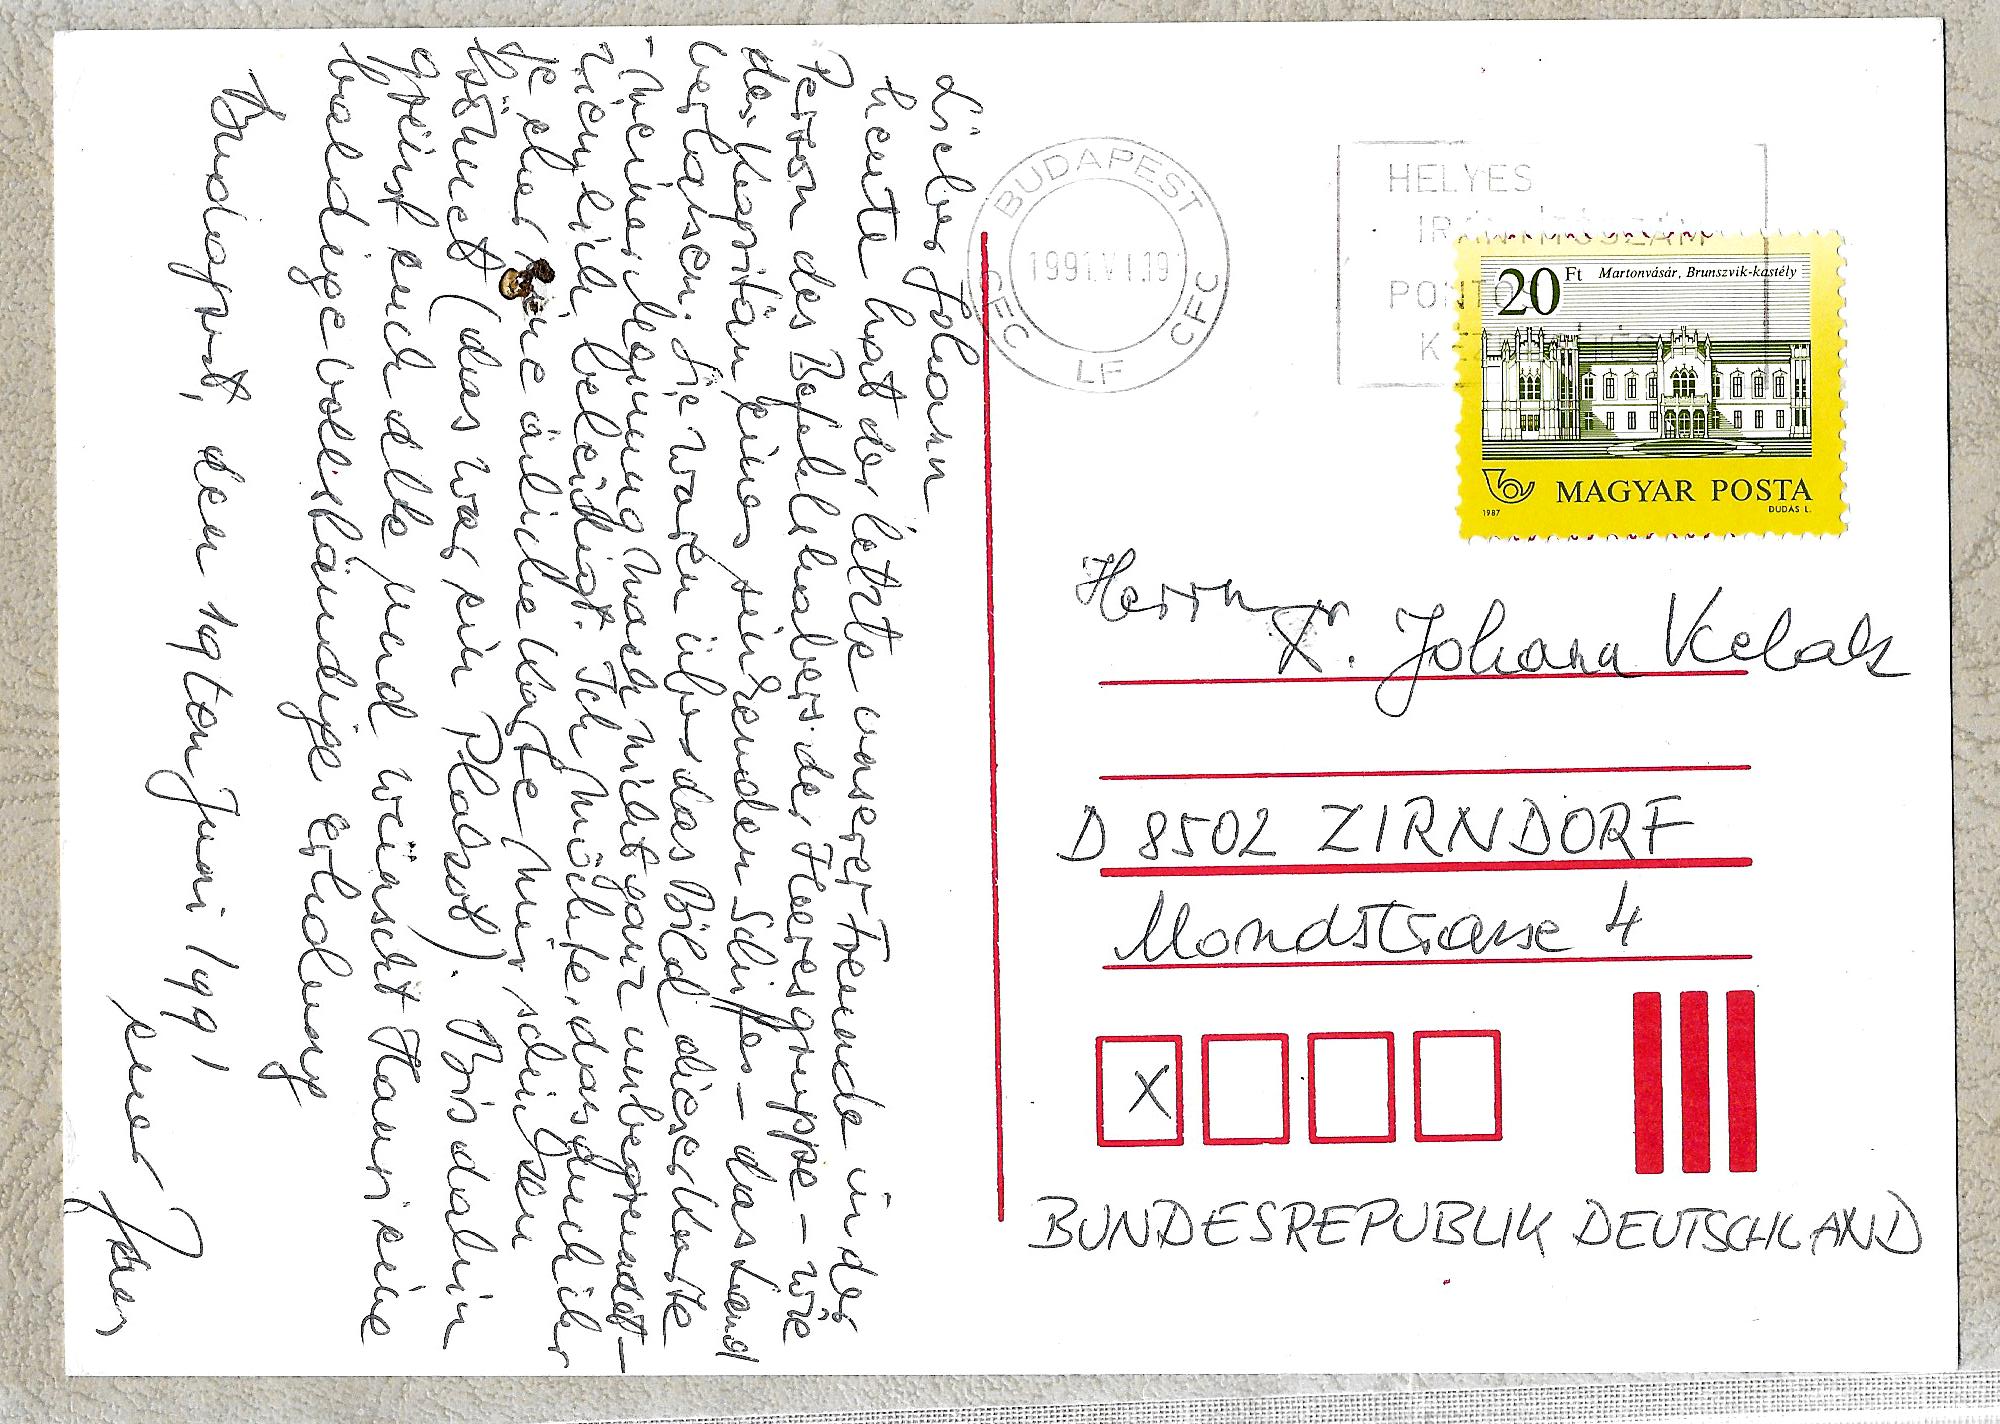 Lieber Johann
heute hat der letzte unserer Freunde in der
Person des Befehlshabers der Heeresgruppe – wie
der Kapitän eines sinkenden Schiffes – das Land
verlassen. Sie waren über das Bild dieser Karte
– meiner Meinung nach nicht ganz unbegründet –
ziemlich beleidigt. Ich möchte, dass auch ihr
je eher eine änliche Karte mir schicken
könnet (das war ein Plakat). Bis dahin
grüsst euch alle und wünscht Hansi eine
baldige vollständige erholung
Budapest, den 19ten Juni 1991
euer
BUDAPEST
1991.VI.19
CFC CFC
LF
HELYES
IRÁNYÍTÓSZÁM
PONTOS
KÉZBESÍTÉS
20 Ft Martonvásár, Brunszvik-kastély
MAGYAR POSTA
1987 DUDÁS L.
Herrn
Dr. Johann
D 8502 ZIRNDORF
Mondstrasse 4
X
BUNDESREPUBLIK DEUTSCHLAND